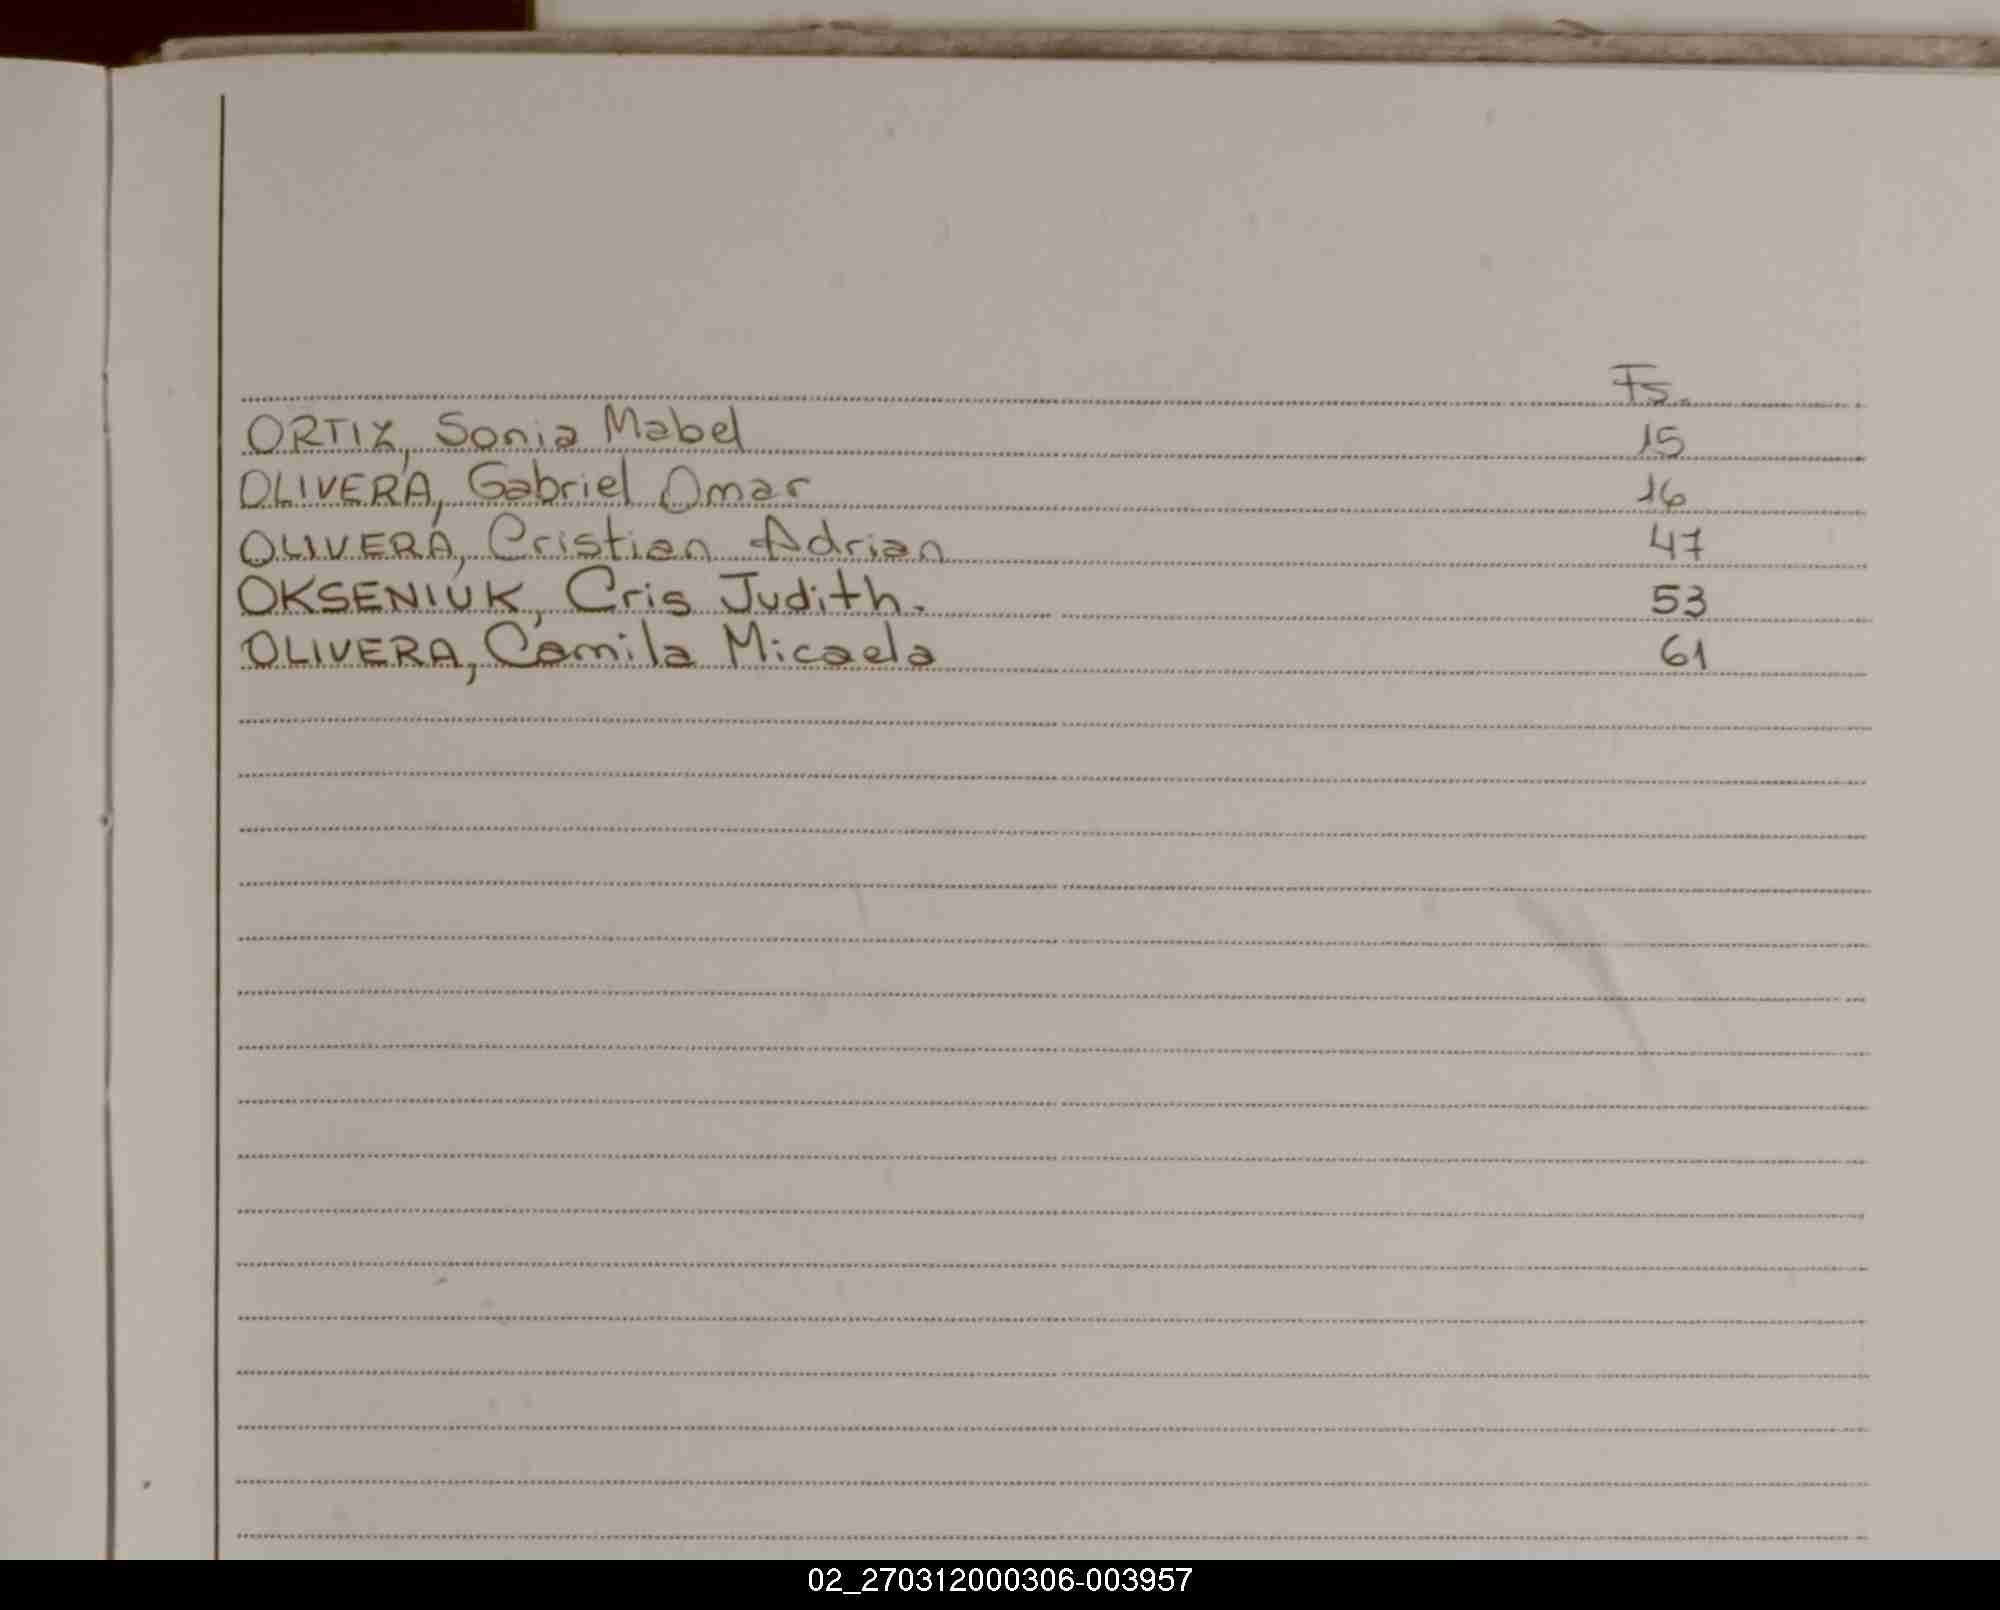 Fs.
ORTIZ, Sonia Mabel 15
OLIVERA, Gabriel Omar 16
OLIVERA, Cristian Adrian 47
OKSENIUK, Cris Judith. 53
OLIVERA, Camila Micaela 61
02_270312000306-003957